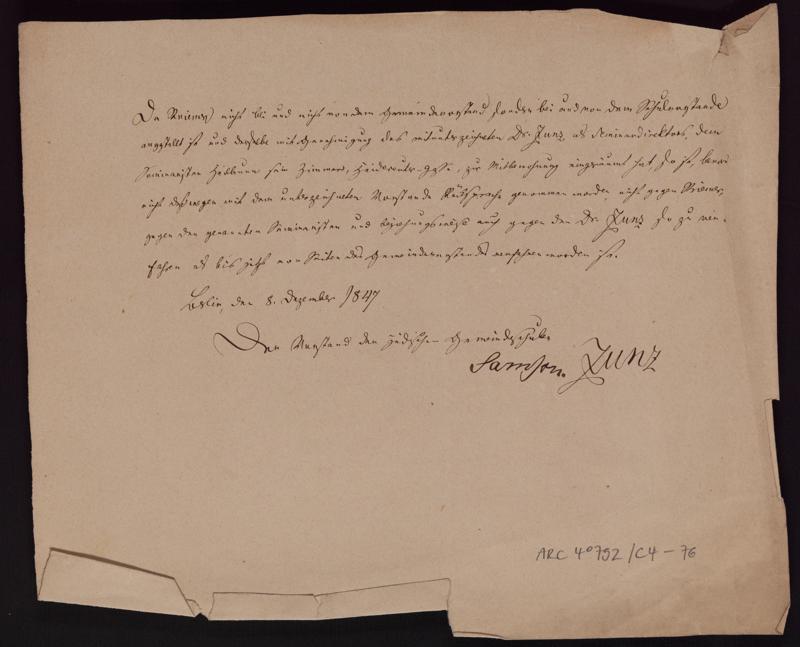 Da Kriener nicht bei und nicht von dem Gemeindevorstand sondern bei und von dem Schulvorstande
angestellt ist und derselbe mit Genehmigung des mitunterzeichneten Dr. Zunz als Seminardirektors dem
Seminaristen Heilbrunn sein Zimmer, Heidereuter Gasse, zur Mitbewohnung eingeräumt hat, so ist, bevor
nicht deßwegen mit dem unterzeichneten Vorstande Rücksprache genommen worden, nicht gegen
gegen den genannten Seminaristen und beziehungsweise auch gegen den Dr. Zunz so zu ver-
fahren als bis jetzt von Seiten des Gemeindevorstandes verfahren worden ist.
Berlin, den 8. Dezember 1847
Der Vorstand der jüdischen Gemeindeschule
Samson. Zunz
ARC 4° 792/C4-76